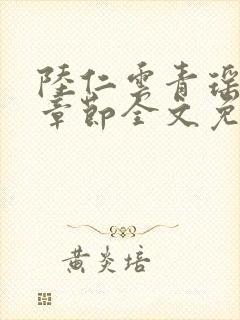 陸仁雲青瑶
章節全文免
黄炎培